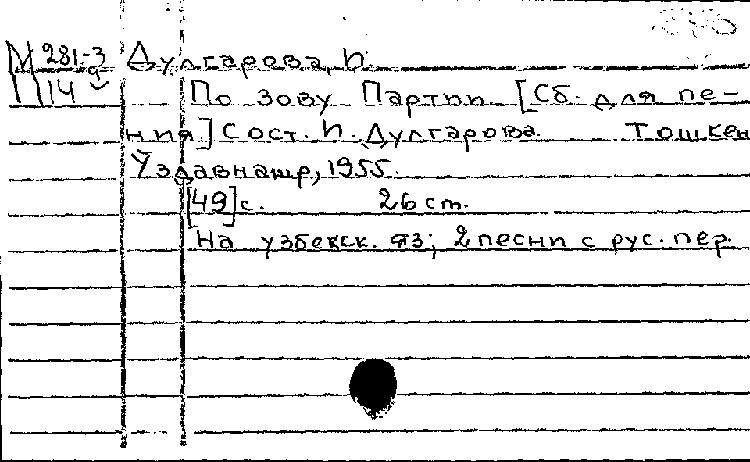 М 281-3 Дулгарова, И.
14 По зову Партии [Сб. для пе-
ния] Сост. И. Дулгарова. Тошкен
Уздавнашр, 1955.
[49] с. 26 cm.
На узбекск. яз; 2 песни с рус. пер.